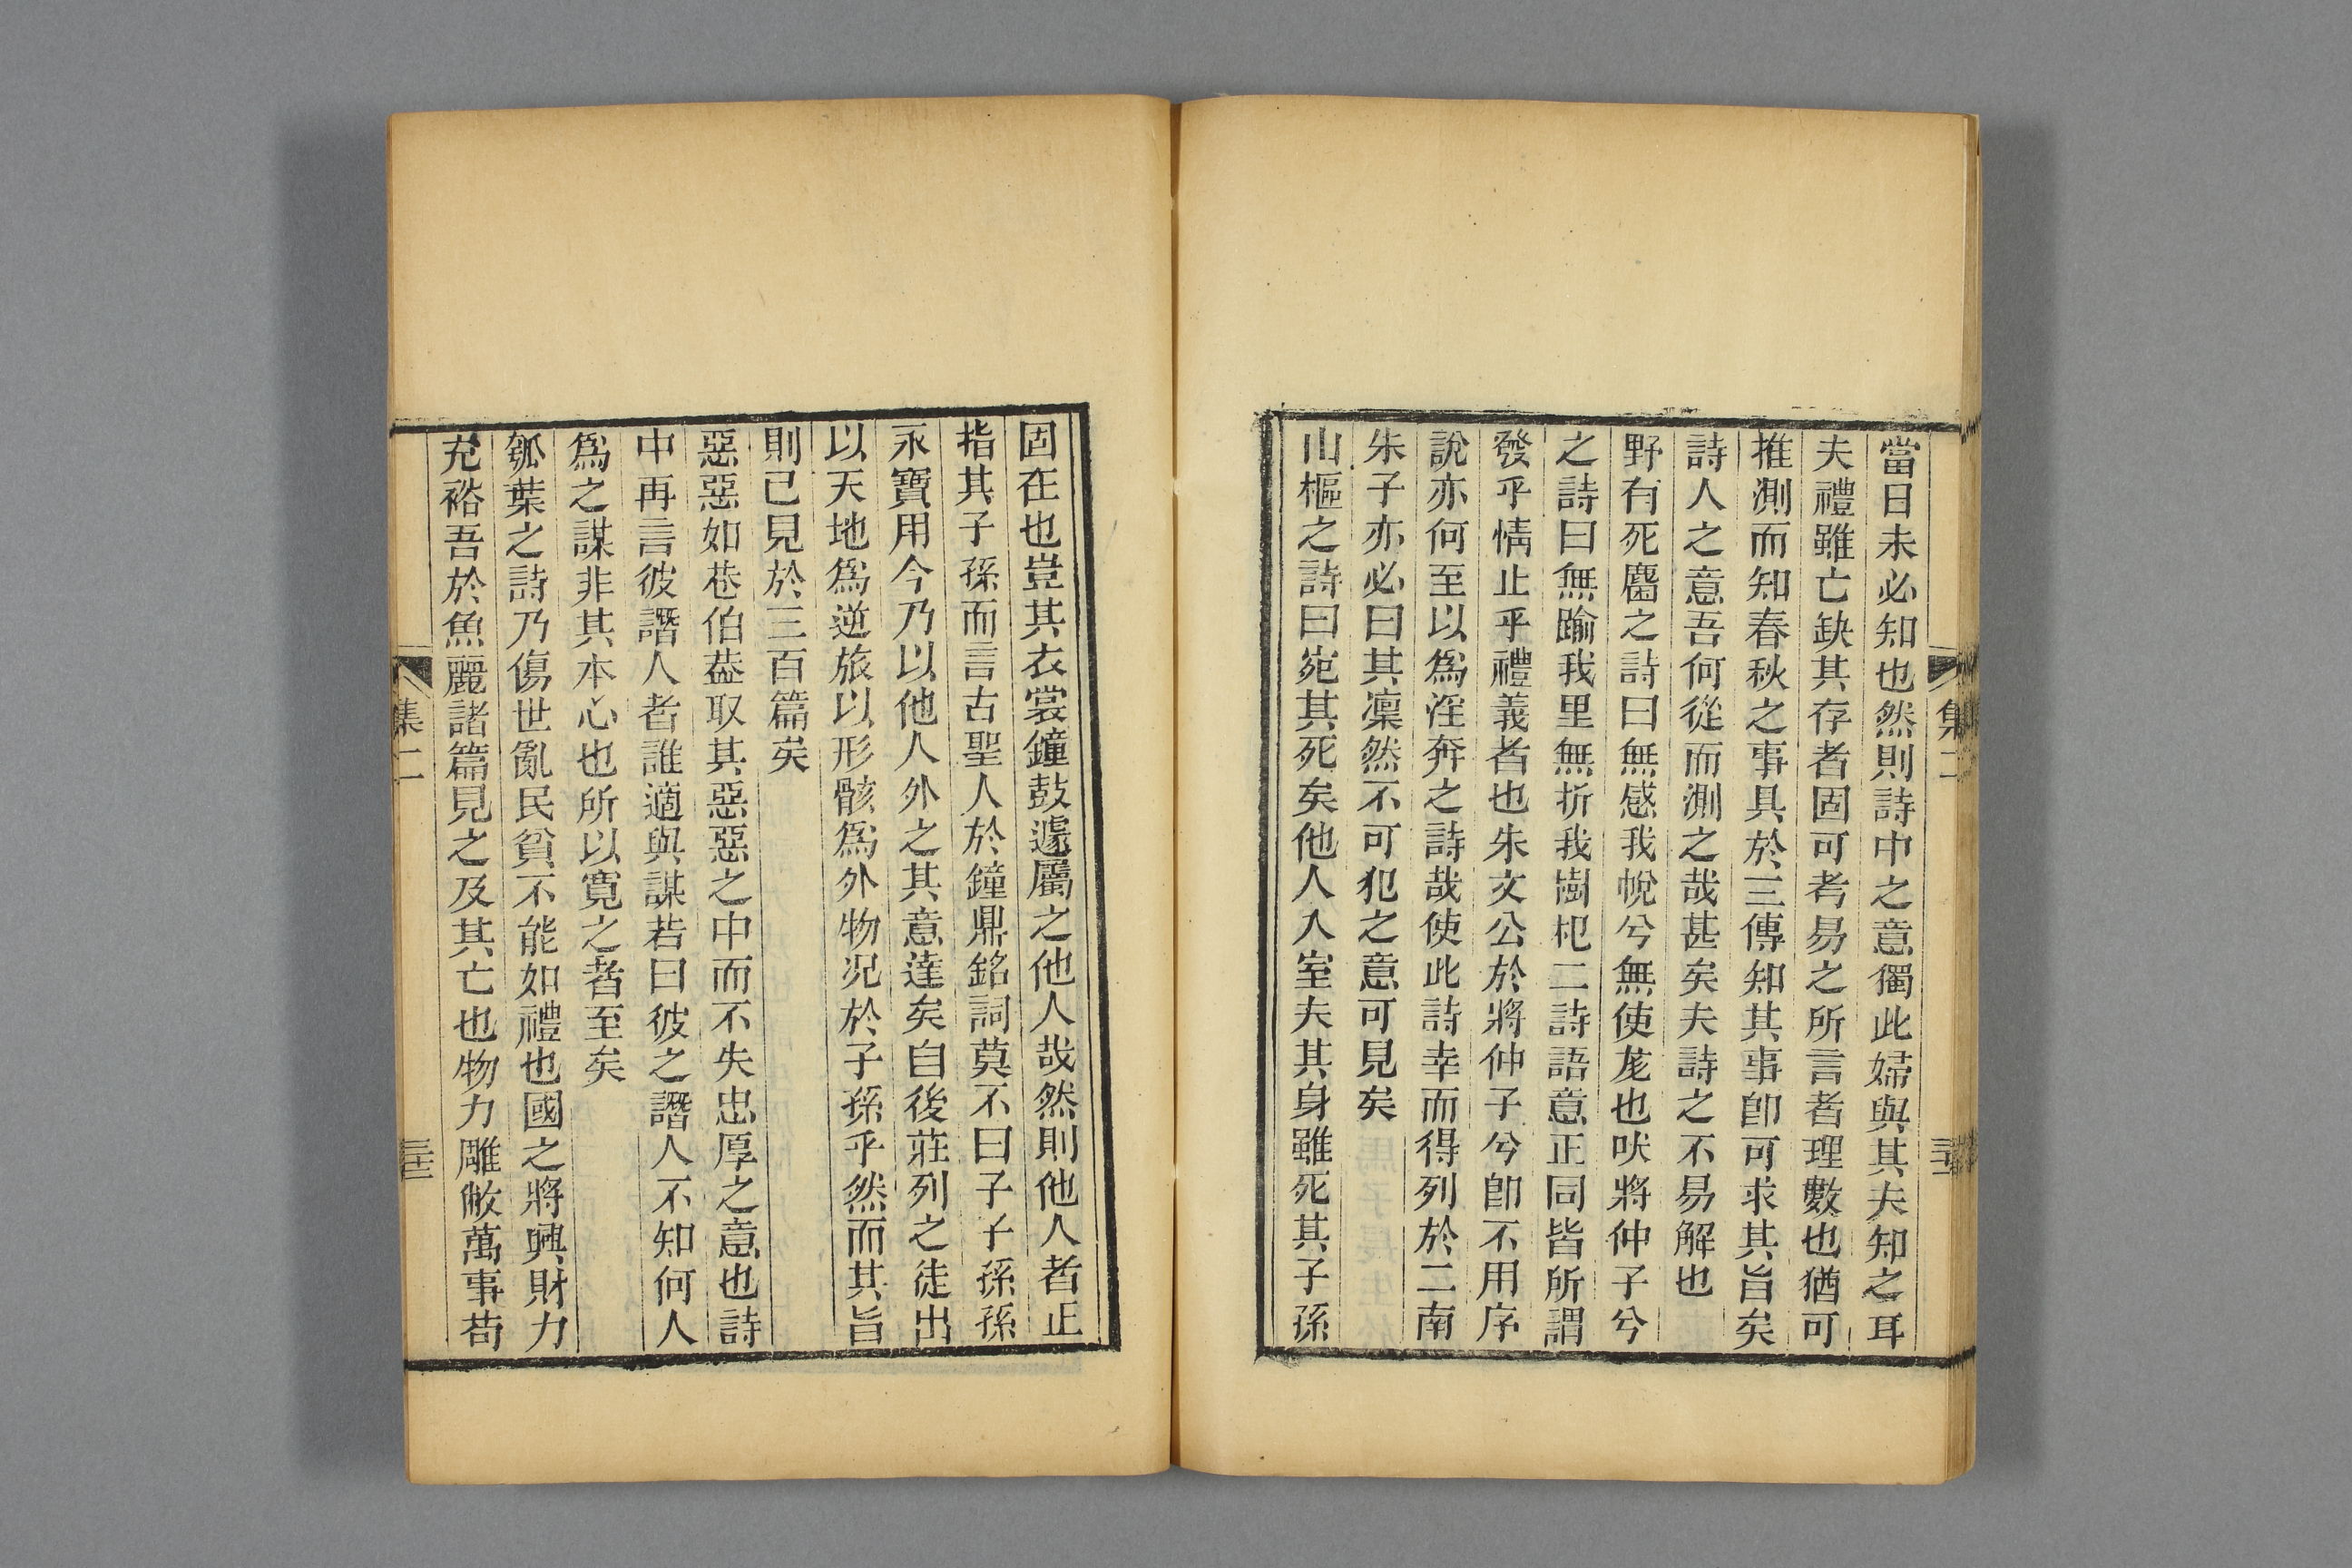 當日未必知也然則詩中之意獨此婦與其夫知之耳
夫禮雖亡缺其存者固可考易之所言者理數也猶可
推測而知春秋之事具於三傳知其事卽可求其旨矣
詩人之意吾何從而測之哉甚矣夫詩之不易解也
野有死麕之詩曰無感我帨兮無使尨也吠將仲子兮
之詩曰無踰我里無折我樹杞二詩語意正同皆所謂
發乎情止乎禮義者也朱文公於將仲子兮卽不用序
說亦何至以爲淫奔之詩哉使此詩幸而得列於二南
朱子亦必曰其凜然不可犯之意可見矣
山樞之詩曰宛其死矣他人入室夫其身雖死其子孫
集二
固在也豈其衣裳鐘鼓遽屬之他人哉然則他人者正
指其子孫而言古聖人於鐘鼎銘詞莫不曰子子孫孫
永寶用今乃以他人外之其意達矣自後莊列之徒出
以天地爲逆旅以形骸爲外物况於子孫乎然而其旨
則已見於三百篇矣
惡惡如巷伯葢取其惡惡之中而不失忠厚之意也詩
中再言彼譖人者誰適與謀若曰彼之譖人不知何人
爲之謀非其本心也所以寬之者至矣
瓠葉之詩乃傷世亂民貧不能如禮也國之將興財力
充裕吾於魚麗諸篇見之及其亡也物力雕敝萬事苟
集二